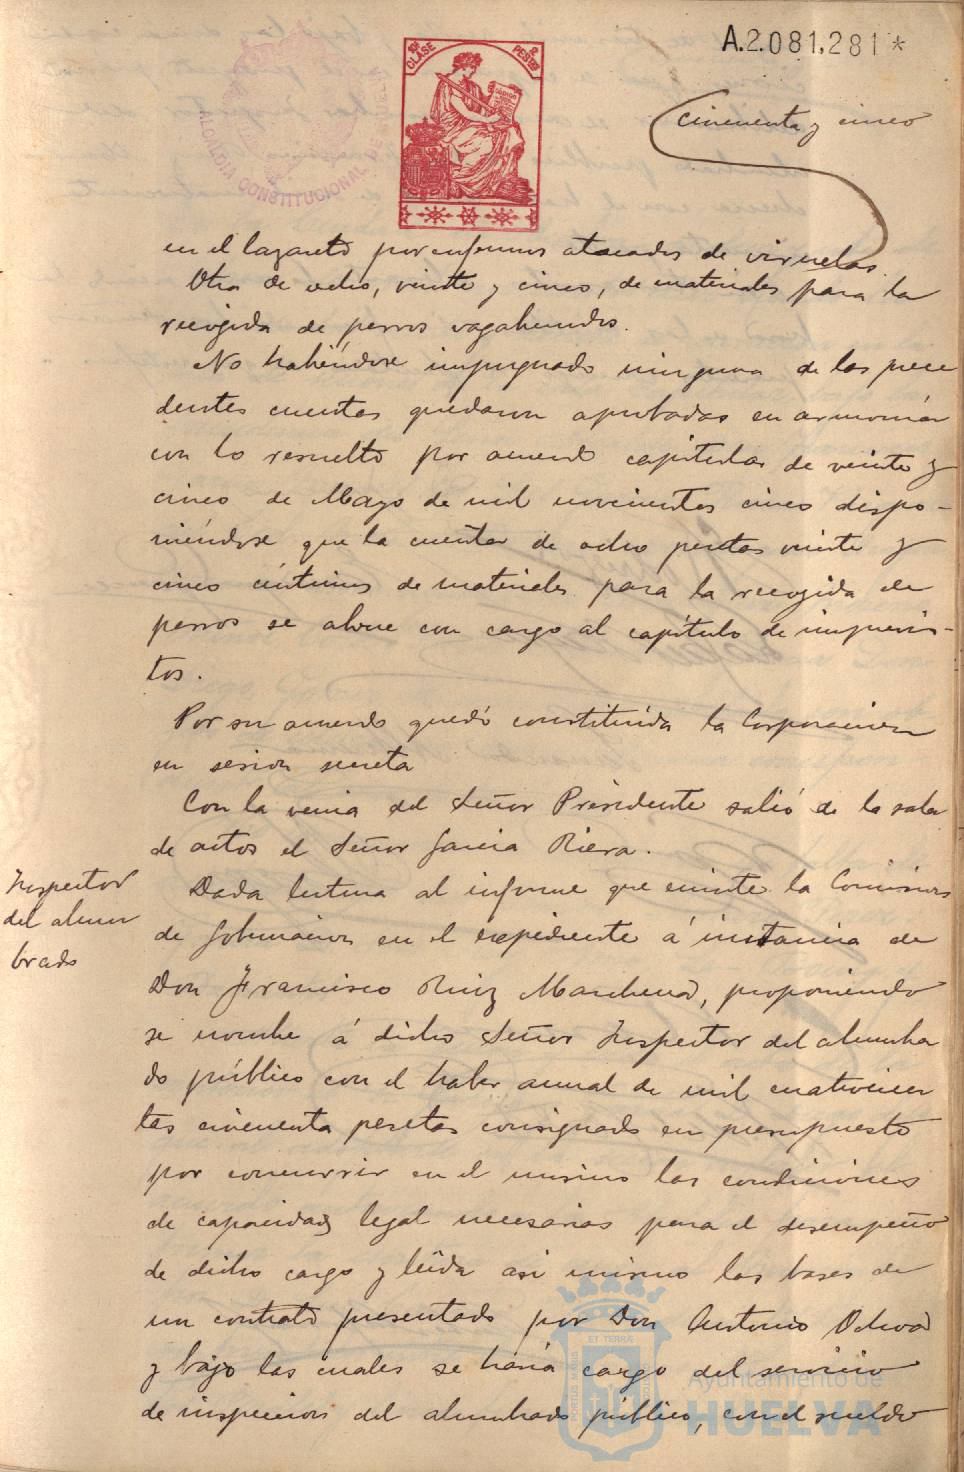 A.2.081,281*
10ª CLASE
2 PESTAS
ALCALDIA CONSTITUCIONAL DE HUELVA
Cincuenta y cinco
en el lazareto por enfermos atacados de viruelas.
Otra de ocho, veinte y cinco, de materiales para la
recogida de perros vagabundos.
No habiéndose impugnado ninguna de las prece
dentes cuentas quedaron aprobadas en armonía
con lo resuelto por acuerdo capitular de veinte y
cinco de Mayo de mil novecientos cinco dispo-
niéndose que la cuenta de ocho pesetas veinte y
cinco céntimos de materiales para la recogida de
perros se abone con cargo al capítulo de imprevis-
tos.
Por su acuerdo quedó constituida la Corporacion
en sesion secreta
Con la venia del Señor Presidente salió de la sala
de actos el Señor Garcia Riera.
Inspector
del alum
brado
Dada lectura al informe que emite la Comision
de Gobernacion en el expediente á instancia de
Don Francisco Ruiz Marchena, proponiendo
se nombre á dicho Señor Inspector del alumbra
do público con el haber anual de mil cuatrocien
tas cincuenta pesetas consignado en presupuesto
por concurrir en el mismo las condiciones
de capacidad legal necesarias para el desempeño
de dicho cargo y leida asi mismo las bases de
un contrato presentado por Don Antonio Ochoa
y bajo las cuales se haria cargo del servicio
de inspeccion del alumbrado público, con el sueldo
Ayuntamiento de
HUELVA